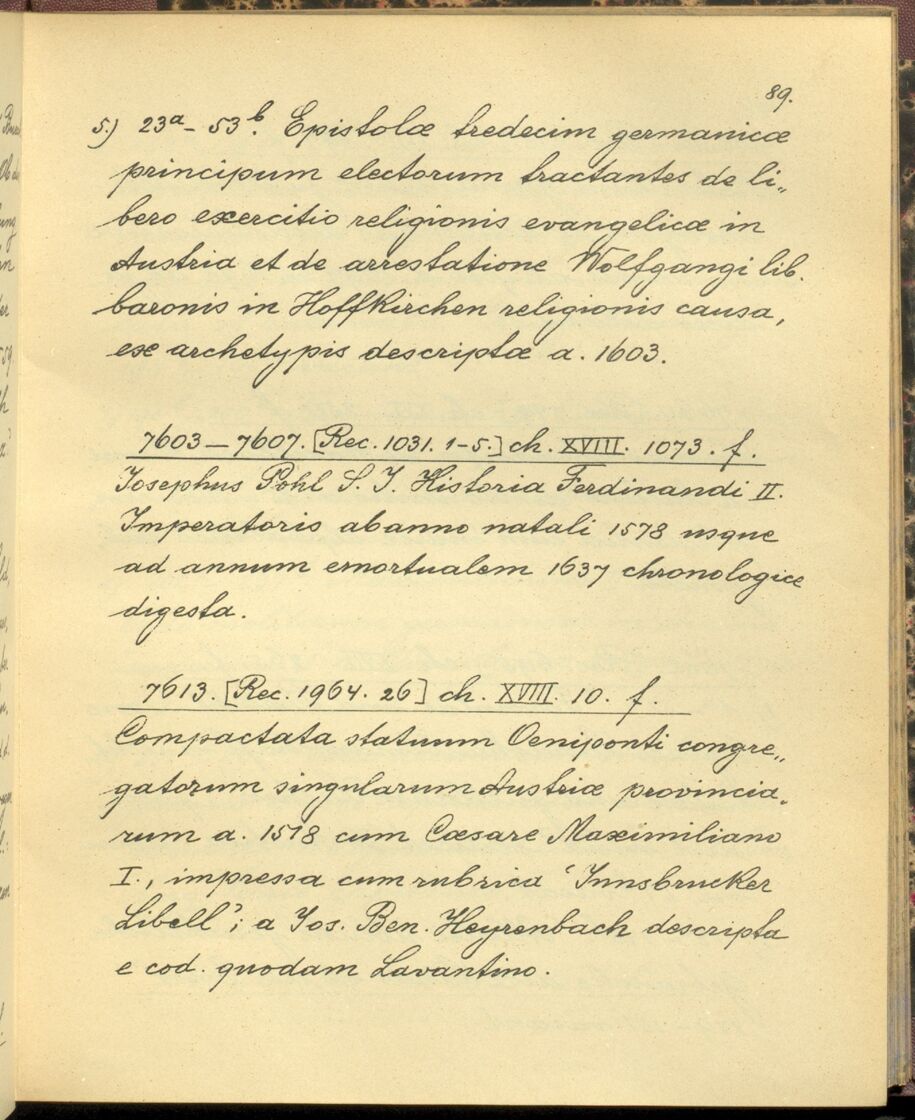 89.
5.) 23a - 53b. Epistolæ tredecim germanicæ
principum electorum tractantes de li„
bero exercitio religionis evangelicæ in
Austria et de arrestatione Wolfgangi lib.
baronis in Hoffkirchen religionis causa,
ex archetypis descriptæ a. 1603.
7603 — 7607. [Rec. 1031. 1-5.] ch. XVIII. 1073. f.
Josephus Pohl S. J. Historia Ferdinandi II.
Imperatoris ab anno natali 1578 usque
ad annum emortualem 1637 chronologice
digesta.
7613. [Rec. 1964. 26] ch. XVIII. 10. f.
Compactata statuum Oeniponti congre„
gatorum singularum Austriæ provincia„
rum a. 1518 cum Cæsare Maximiliano
I., impressa cum rubrica ‘Innsbrucker
Libell’; a Jos. Ben. Heyrenbach descripta
e cod. quodam Lavantino.